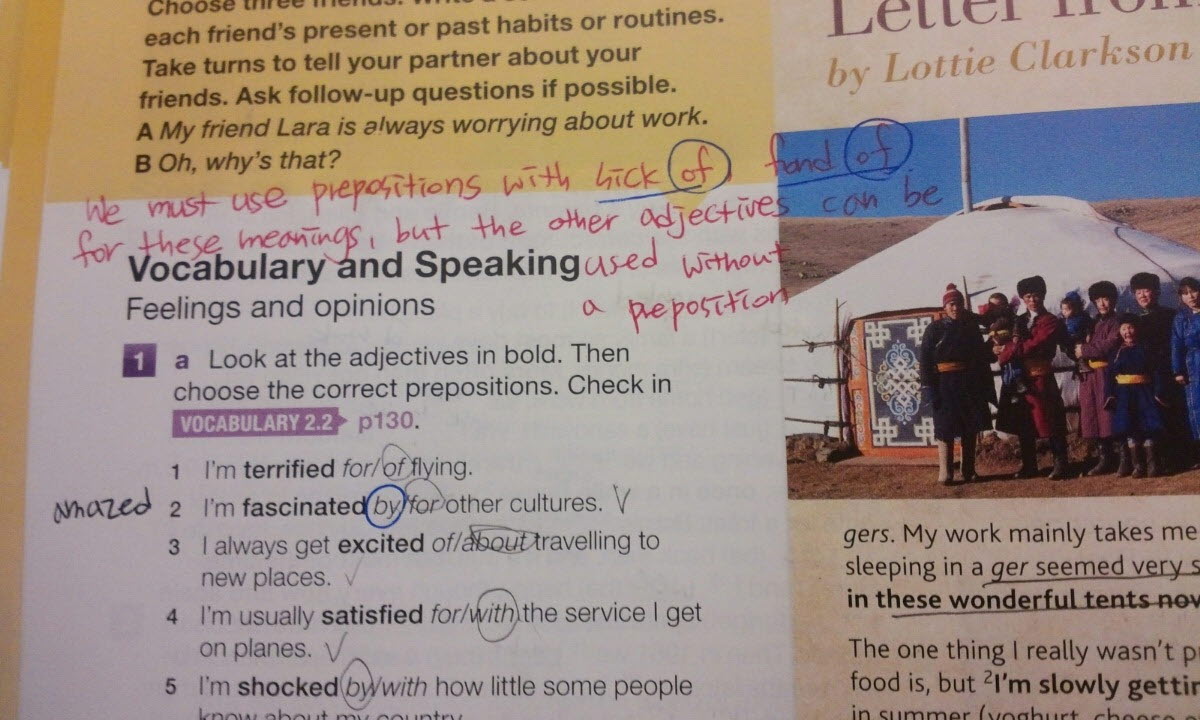 Choose three friends.
each friend's present or past habits or routines.
Take turns to tell your partner about your
friends. Ask follow-up questions if possible.
A My friend Lara is always worrying about work.
B Oh, why's that?
We must use prepositions with sick of, fond of
for these meanings, but the other adjectives can be
used without
a preposition
Vocabulary and Speaking
Feelings and opinions
1 a Look at the adjectives in bold. Then
choose the correct prepositions. Check in
VOCABULARY 2.2 p130.
1 I'm terrified for/of flying.
amazed 2 I'm fascinated by/for other cultures. √
3 I always get excited of/about travelling to
new places. √
4 I'm usually satisfied for/with the service I get
on planes. √
5 I'm shocked by/with how little some people
know about my country.
Letter from
by Lottie Clarkson
gers. My work mainly takes me
sleeping in a ger seemed very
in these wonderful tents now
The one thing I really wasn't
food is, but 2I'm slowly
in summer (yoghurt,